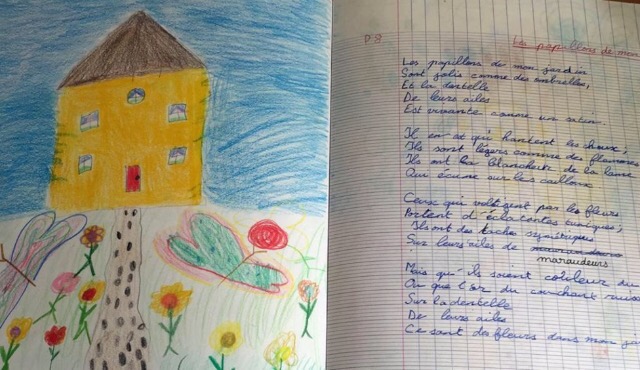 P 9
Les papillons de mon
Les papillons de mon jardin
Sont jolis comme des ombrelles,
Et la dentelle
De leurs ailes
Est vivante comme un satin
Il en est qui hantent les choux,
Ils sont légers comme des flammes
Ils ont la blancheur de la lune
Qui écume sur les cailloux
Ceux qui voltigent par les fleurs
Portent d'éclatantes tuniques,
Ils ont des taches
Sur leurs ailes de
maraudeurs
Mais qu'ils soient couleur du
Ou que l'or du couchant
Sur la dentelle
De leurs ailes
Ce sont des fleurs dans mon ja